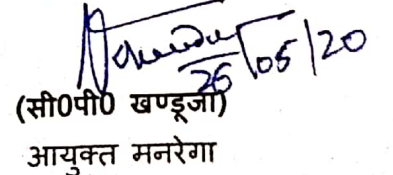 26/05/20
(सी0पी0 खण्डूजा)
आयुक्त मनरेगा